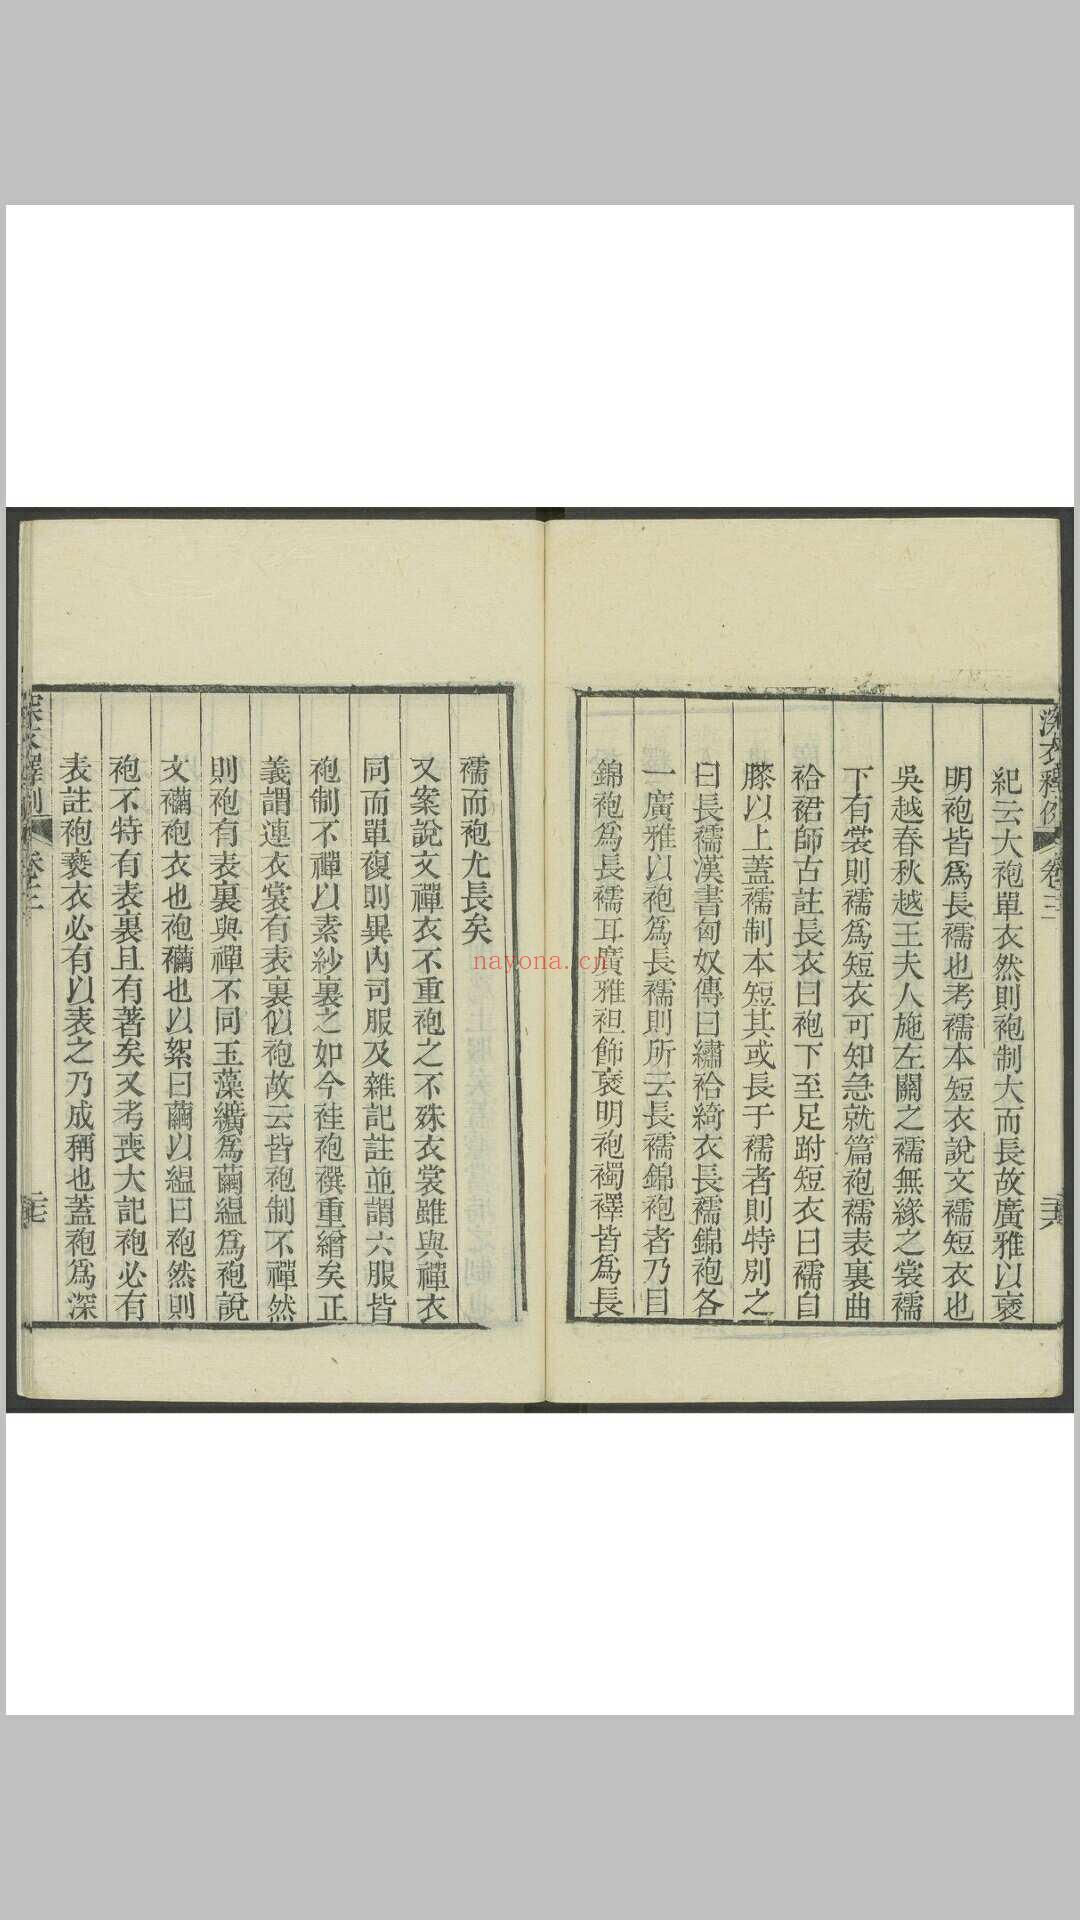 深衣釋例 卷三 三六
紀云大袍單衣然則袍制大而長故廣雅以褒
明袍皆爲長襦也考襦本短衣說文襦短衣也
吳越春秋越王夫人施左關之襦無緣之裳襦
下有裳則襦爲短衣可知急就篇袍襦表裏曲
袷裙師古註長衣曰袍下至足跗短衣曰襦自
膝以上蓋襦制本短其或長于襦者則特別之
曰長襦漢書匈奴傳曰繡袷綺衣長襦錦袍各
一廣雅以袍爲長襦則所云長襦錦袍者乃目
錦袍爲長襦耳廣雅袒飾褒明袍襡襗皆爲長
襦而袍尤長矣
又案說文襌衣不重袍之不殊衣裳雖與襌衣
同而單複則異內司服及雜記註並謂六服皆
袍制不襌以素紗裏之如今袿袍襈重繒矣正
義謂連衣裳有表裏似袍故云皆袍制不襌然
則袍有表裏與襌不同玉藻纊爲繭縕爲袍說
文襺袍衣也袍襺也以絮曰繭以縕曰袍然則
袍不特有表裏且有著矣又考喪大記袍必有
表註袍褻衣必有以表之乃成稱也蓋袍爲深
深衣釋例 卷三 三七
nayona.cn